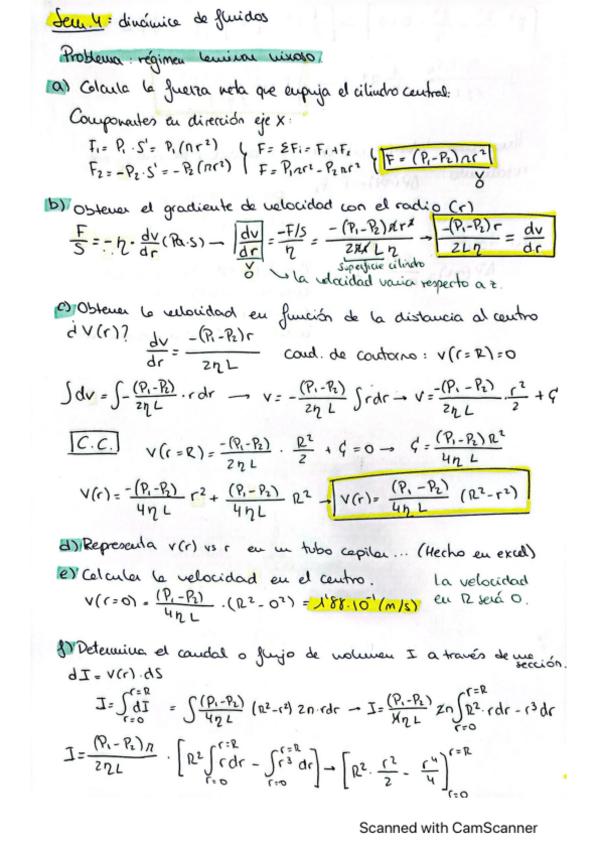 Sem. 4: dinámica de fluidos
Problema: régimen laminar viscoso.
a) Calcula la fuerza neta que empuja el cilindro central.
Componentes en dirección eje X:
F₁ = P₁ · S' = P₁(πr²) } F = ΣFi = F₁ + F₂ } F = (P₁-P₂)πr²
F₂ = -P₂ · S' = -P₂(πr²) } F = P₁πr² - P₂πr²
b) Obtener el gradiente de velocidad con el radio (r)
F/S = -η · dv/dr (Pa·S) → dv/dr = -F/S / η = -(P₁-P₂)πr² / 2πrLη → -(P₁-P₂)r / 2Lη = dv/dr
superficie cilindro
↳ la velocidad varia respecto a r.
c) Obtener la velocidad en función de la distancia al centro
¿V(r)? dv/dr = -(P₁-P₂)r / 2ηL cond. de contorno: v(r=R)=0
∫dv = ∫-(P₁-P₂)/2ηL · rdr → v = -(P₁-P₂)/2ηL ∫rdr → v = -(P₁-P₂)/2ηL · r²/2 + C₁
C.C. v(r=R) = -(P₁-P₂)/2ηL · R²/2 + C₁ = 0 → C₁ = (P₁-P₂)R²/4ηL
v(r) = -(P₁-P₂)/4ηL r² + (P₁-P₂)/4ηL R² → v(r) = (P₁-P₂)/4ηL (R²-r²)
d) Representa v(r) vs r en un tubo capilar... (Hecho en excel)
e) Calcular la velocidad en el centro.
La velocidad
v(r=0) = (P₁-P₂)/4ηL · (R²-0²) = 1'88·10⁻¹ (m/s)
en R será 0.
f) Determina el caudal o flujo de volumen I a través de una
sección.
dI = v(r) · dS
I = ∫r=0 r=R dI = ∫(P₁-P₂)/4ηL (R²-r²) 2πrdr → I = (P₁-P₂)/4ηL 2π ∫r=0 r=R R²·rdr - r³dr
I = (P₁-P₂)π/2ηL · [R² ∫r=0 r=R rdr - ∫r=0 r=R r³dr] → [R² · r²/2 - r⁴/4] r=R r=0
Scanned with CamScanner